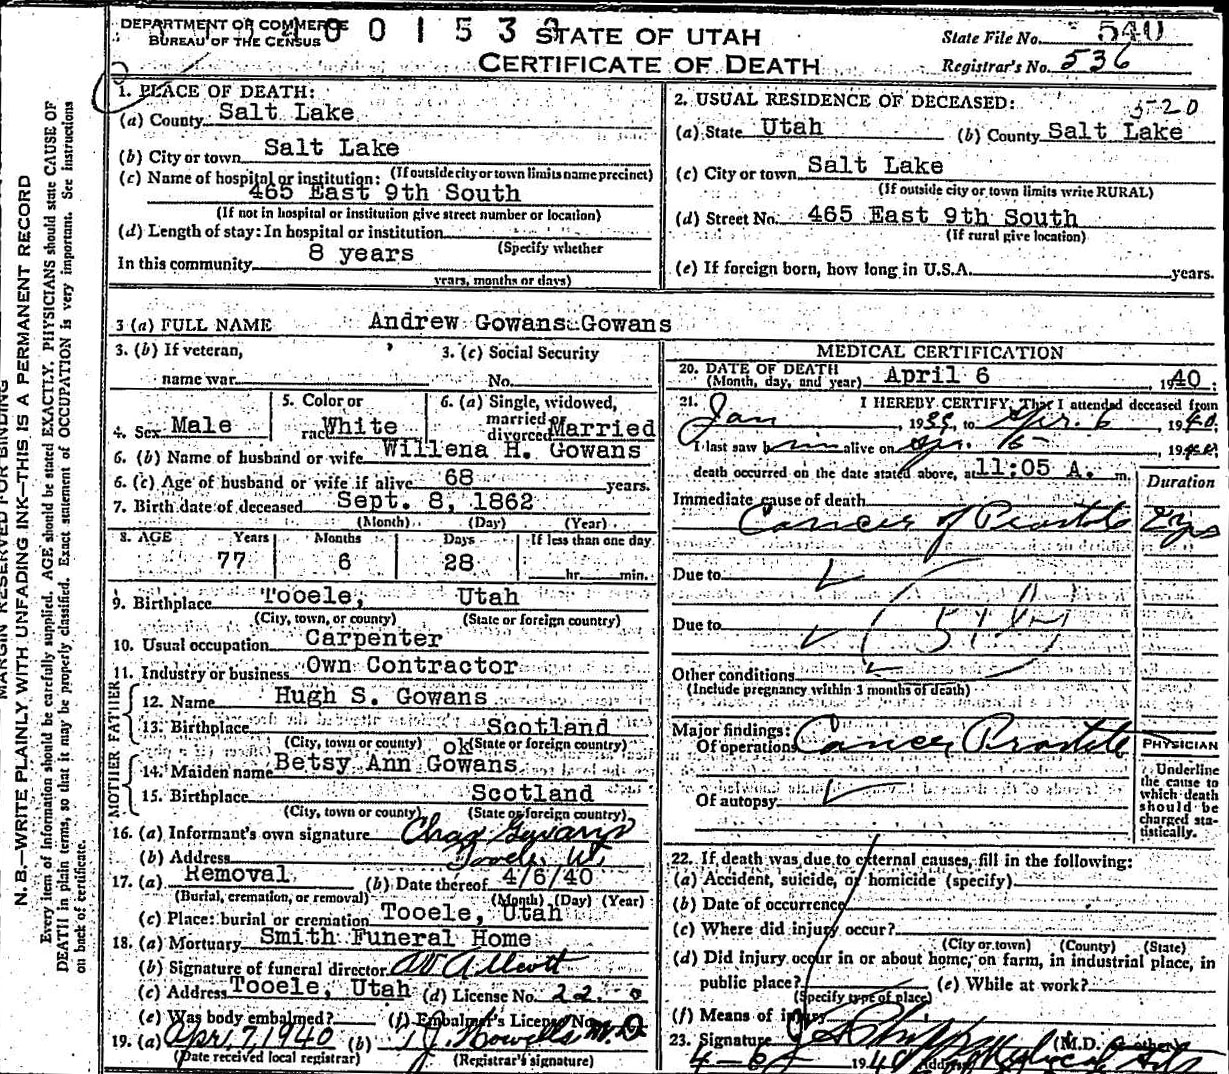 DEPARTMENT OF COMMERCE
BUREAU OF THE CENSUS
0 0 1 5 3
STATE OF UTAH
CERTIFICATE OF DEATH
State File No. 540
Registrar's No. 536
1. PLACE OF DEATH:
(a) County Salt Lake
(b) City or town Salt Lake
(If outside city or town limits name precinct)
(c) Name of hospital or institution:
465 East 9th South
(If not in hospital or institution give street number or location)
(d) Length of stay: In hospital or institution
(Specify whether
In this community 8 years
years, months or days)
2. USUAL RESIDENCE OF DECEASED:
(a) State Utah (b) County Salt Lake
(c) City or town Salt Lake
(If outside city or town limits write RURAL)
(d) Street No. 465 East 9th South
(If rural give location)
(e) If foreign born, how long in U.S.A. years.
3 (a) FULL NAME Andrew Gowans Gowans
3. (b) If veteran,
name war
3. (c) Social Security
No.
4. Sex Male
5. Color or
race White
6. (a) Single, widowed,
married
divorced Married
6. (b) Name of husband or wife Willena H. Gowans
6. (c) Age of husband or wife if alive 68 years.
7. Birth date of deceased Sept. 8, 1862
(Month) (Day) (Year)
8. AGE Years Months Days If less than one day
77 6 28 hr. min.
9. Birthplace Tooele, Utah
(City, town, or county) (State or foreign country)
10. Usual occupation Carpenter
11. Industry or business Own Contractor
FATHER
12. Name Hugh S. Gowans
13. Birthplace Scotland
(City, town or county) ok (State or foreign country)
MOTHER
14. Maiden name Betsy Ann Gowans
15. Birthplace Scotland
(City, town or county) (State or foreign country)
16. (a) Informant's own signature Chas Gowans
(b) Address Tooele Ut
17. (a) Removal (b) Date thereof 4/6/40
(Burial, cremation, or removal) (Month) (Day) (Year)
(c) Place: burial or cremation Tooele, Utah
18. (a) Mortuary Smith Funeral Home
(b) Signature of funeral director
(c) Address Tooele, Utah (d) License No. 22
(e) Was body embalmed? (f) Embalmer's License No.
19. (a) Apr. 7, 1940 (b) T J Howells M.D
(Date received local registrar) (Registrar's signature)
MEDICAL CERTIFICATION
20. DATE OF DEATH
(Month, day, and year) April 6, 1940.
21. I HEREBY CERTIFY, That I attended deceased from
Jan, 1939, to Apr. 6 1940.
I last saw him alive on Apr. 1940
death occurred on the date stated above, at 11:05 A. m.
Duration
Immediate cause of death
Cancer of Prostate 2 yrs
Due to
Due to
Other conditions
(Include pregnancy within 3 months of death)
Major findings:
Of operations Cancer Prostate
Of autopsy
PHYSICIAN
Underline
the cause to
which death
should be
charged sta-
tistically.
22. If death was due to external causes, fill in the following:
(a) Accident, suicide, or homicide (specify)
(b) Date of occurrence
(c) Where did injury occur?
(City or town) (County) (State)
(d) Did injury occur in or about home, on farm, in industrial place, in
public place? (e) While at work?
(Specify type of place)
(f) Means of injury
23. Signature (M.D. or other)
4-6 1940 Address
MARGIN RESERVED FOR BINDING
N. B.—WRITE PLAINLY WITH UNFADING INK—THIS IS A PERMANENT RECORD
Every item of information should be carefully supplied. AGE should be stated EXACTLY. PHYSICIANS should state CAUSE OF
DEATH in plain terms, so that it may be properly classified. Exact statement of OCCUPATION is very important. See instructions
on back of certificate.